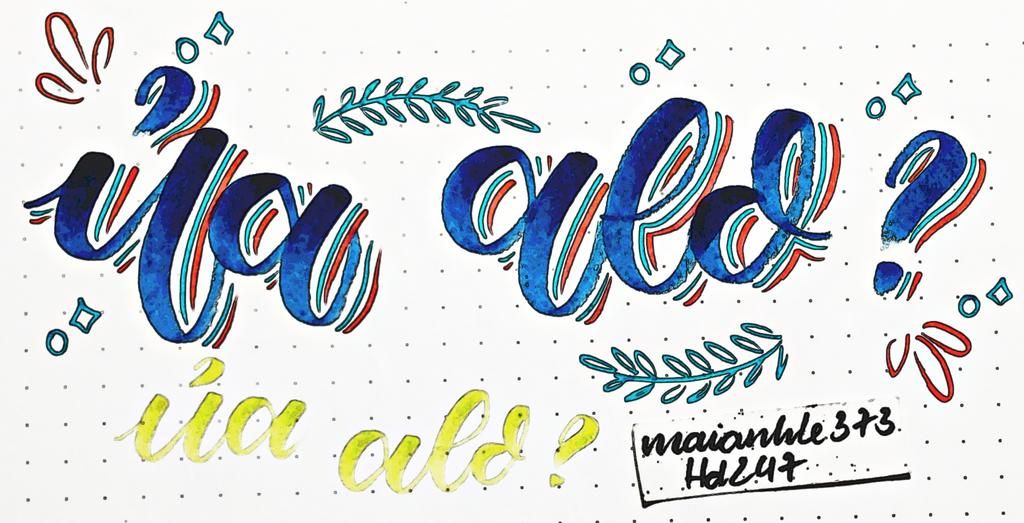 ủa alo ?
ủa alo ?
maianhle373
Hd247